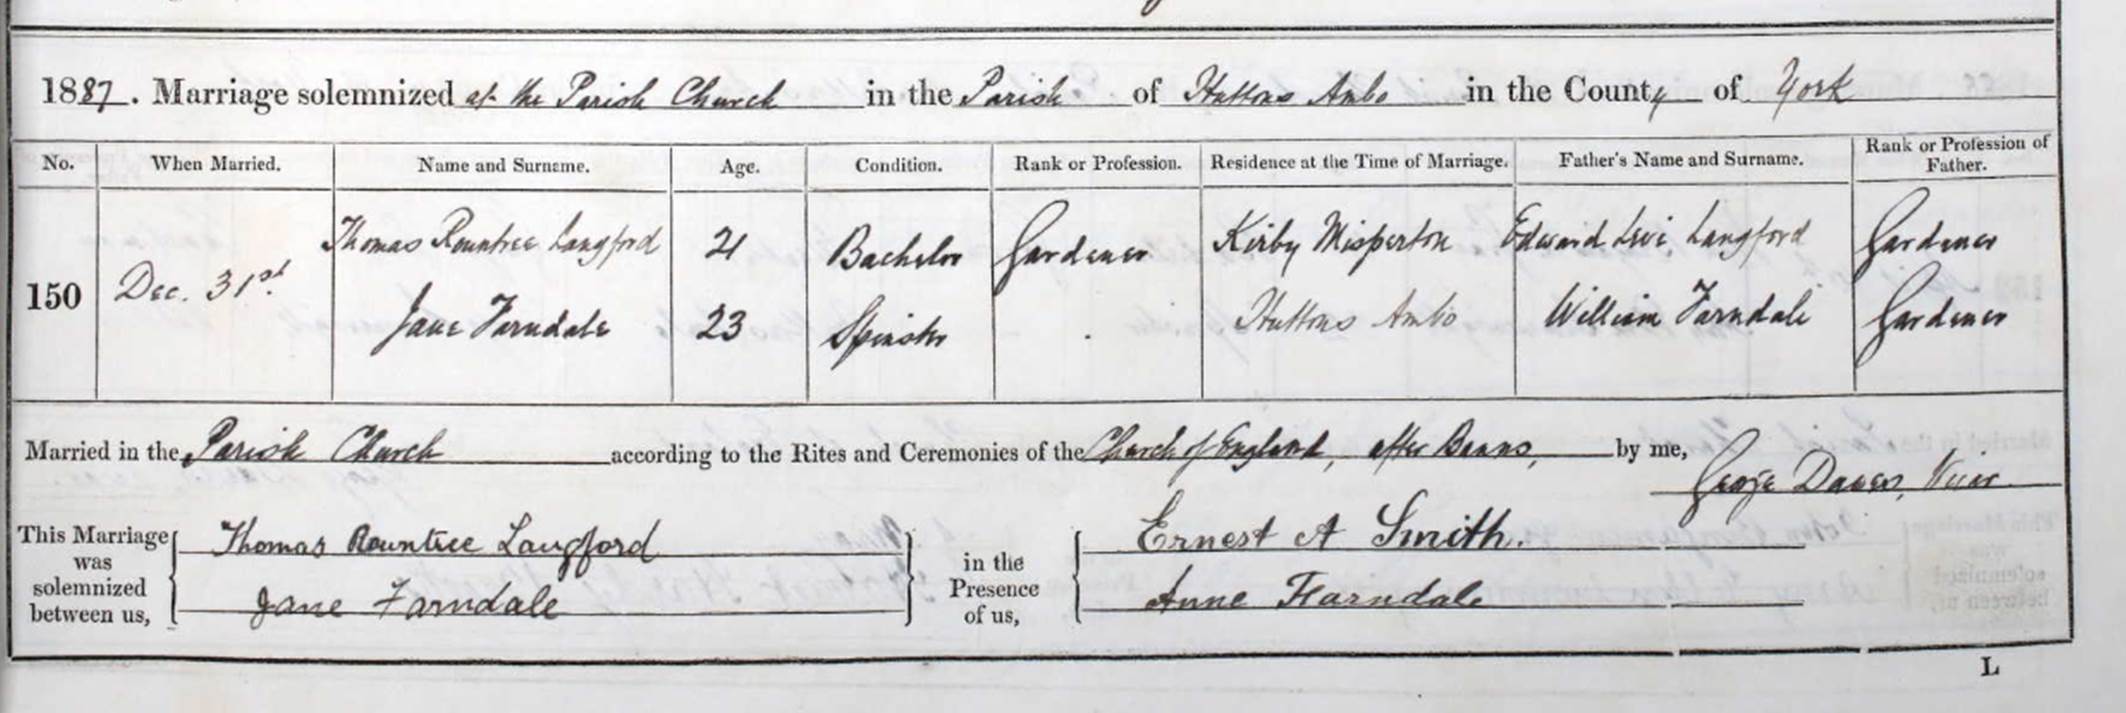 1887. Marriage solemnized at the Parish Church in the Parish of Huttons Ambo in the County of York
No. When Married. Name and Surname. Age. Condition. Rank or Profession. Residence at the Time of Marriage. Father's Name and Surname. Rank or Profession of Father.
Thomas Rountree Langford 21 Bachelor Gardener Kirby Misperton Edward Levi Langford Gardener
150 Dec. 31st
Jane Farndale 23 Spinster Huttons Ambo William Farndale Gardener
Married in the Parish Church according to the Rites and Ceremonies of the Church of England, after Banns, by me,
George Dawes, Vicar
This Marriage was solemnized between us,
Thomas Rountree Langford
Jane Farndale
in the Presence of us,
Ernest A Smith.
Anne Farndale
L